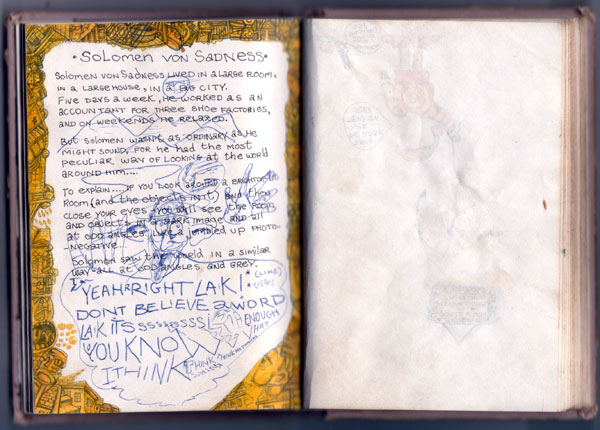 • SOLOMEN VON SADNESS •
SOLOMEN VON SADNESS LIVED IN A LARGE ROOM.
IN A LARGE HOUSE, IN A BIG CITY.
FIVE DAYS A WEEK, HE WORKED AS AN
ACCOUNTANT FOR THREE SHOE FACTORIES,
AND ON WEEKENDS HE RELAXED.
BUT SOLOMEN WASN'T AS ORDINARY AS HE
MIGHT SOUND, FOR HE HAD THE MOST
PECULIAR WAY OF LOOKING AT THE WORLD
AROUND HIM....
TO EXPLAIN.... IF YOU LOOK AROUND A BRIGHTLY LIT
ROOM (AND THE OBJECTS IN IT) AND THEN
CLOSE YOUR EYES, YOU WILL SEE THE ROOM
AND OBJECTS IN A DARK IMAGE AND ALL
AT ODD ANGLES LIKE A JUMBLED UP PHOTO-
-NEGATIVE..
SOLOMEN SAW THE WORLD IN A SIMILAR
WAY - ALL AT ODD ANGLES AND GREY.
YEAH RIGHT LAK!
DONT BELIEVE A WORD
LAK ITSSSSSSSSS
ENOUGH
YOU KNOW
I THINK